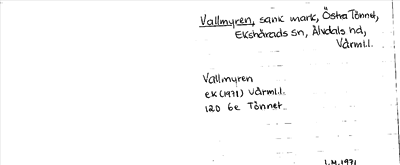 Vallmyren, sank mark, Östra Tönnet,
Ekshärads sn, Älvdals hd,
Värml.l.
Vallmyren
ek (1971) Värml.l.
12D 6e Tönnet.
I.M. 1971